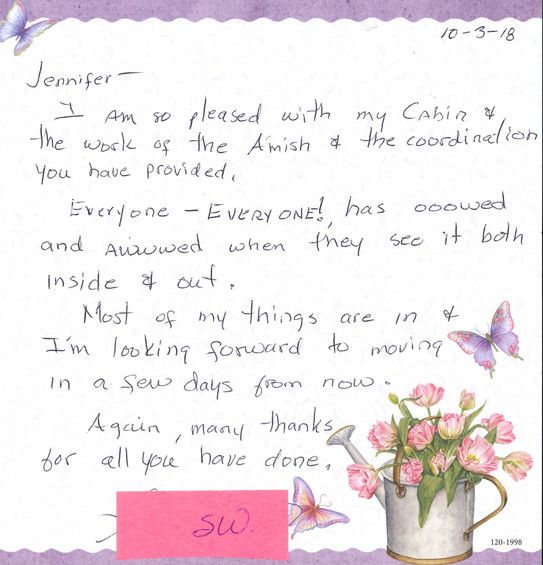 10-3-18
Jennifer—
I am so pleased with my Cabin &
the work of the Amish & the coordination
you have provided.
Everyone – EVERYONE!, has ooowed
and awwwed when they see it both
inside & out.
Most of my things are in &
I'm looking forward to moving
in a few days from now.
Again, many thanks
for all you have done.
SW.
120-1998